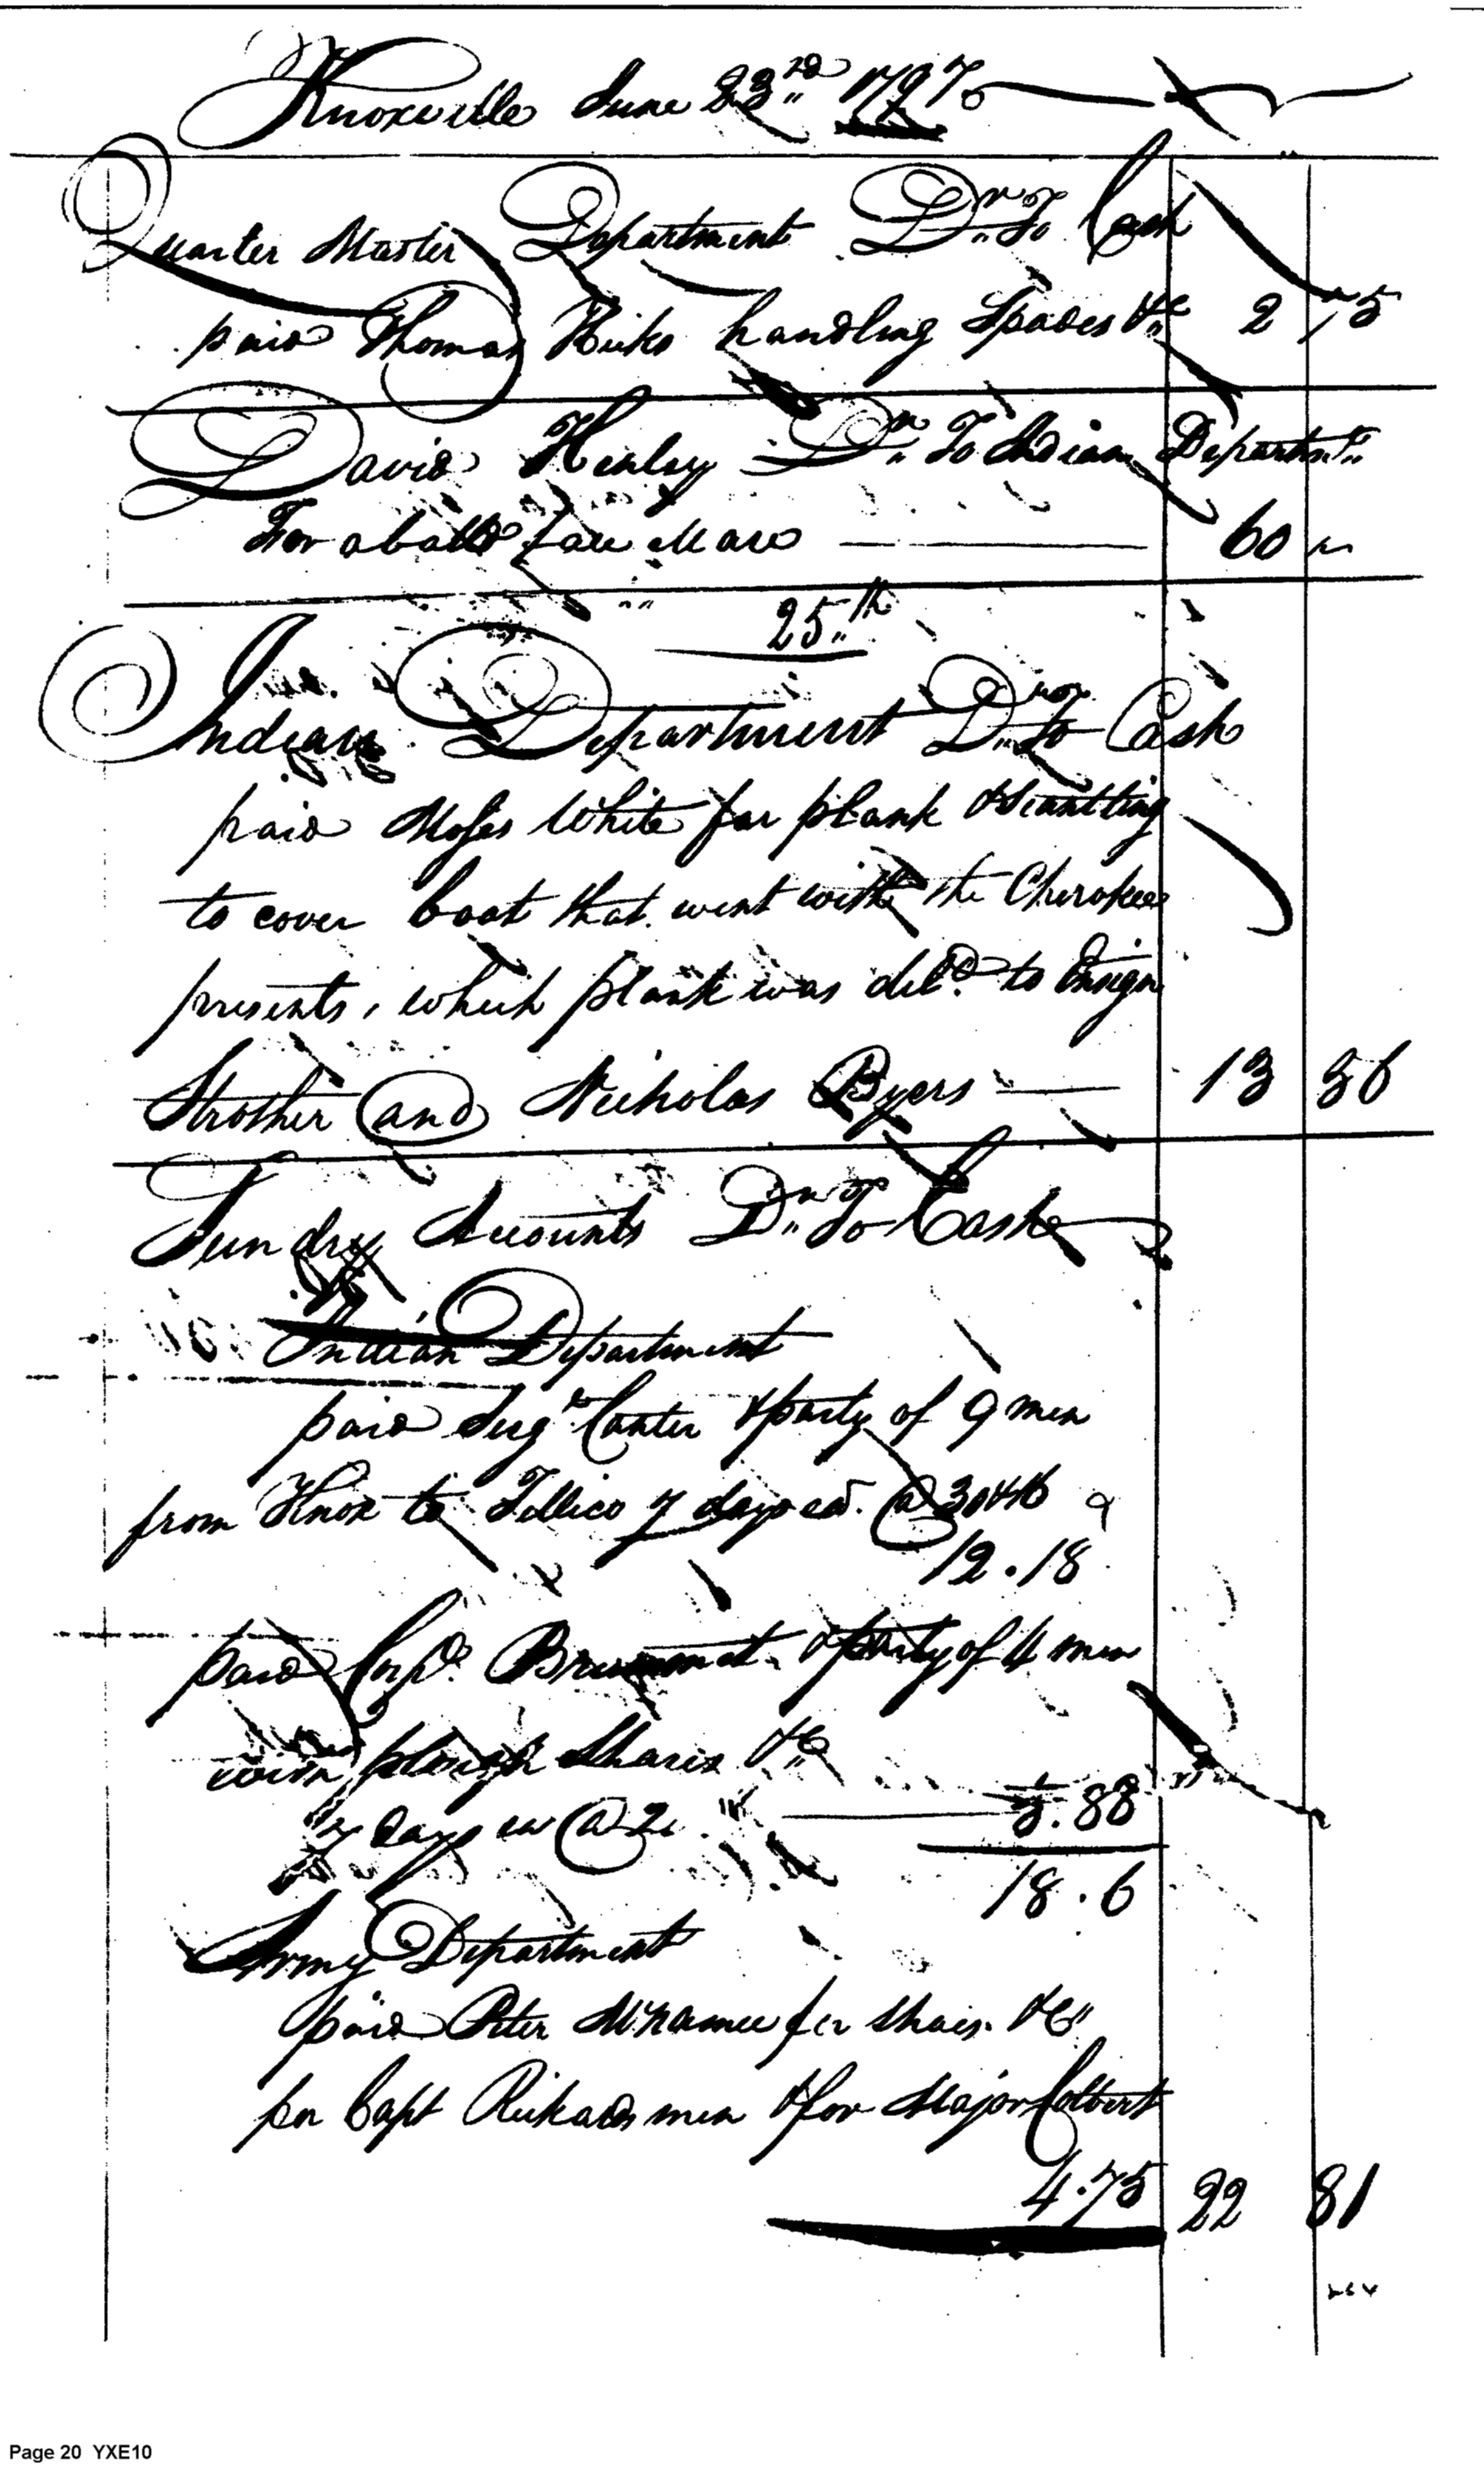 Knoxville June 23rd 1797
Quarter Master Department Dr. To Cash
paid Thomas Hicks handling Spades &c 2 75
David Henley Dr. To Indian Departmt.
For a ball face Mare 60 "
25th
Indian Department Dr. To Cash
paid Moses White for plank & scantling
to cover boat that went with the Cherokee
presents, which plank was deld. to Ensign
Strother and Nicholas Byers 13 36
Sundry Accounts Dr. To Cash
Indian Department
paid Serg. Carter & party of 9 men
from Knox to Tellico 7 days ea. @
12.18
paid Corpl. & party of 4 men
with plough Shares &c
7 days ea @ 2 5.88
18.6
Army Department
paid Peter McNamee for shoes &c
for Capt Rickards men & for Major Colbert
4.75 22 81
Page 20 YXE10